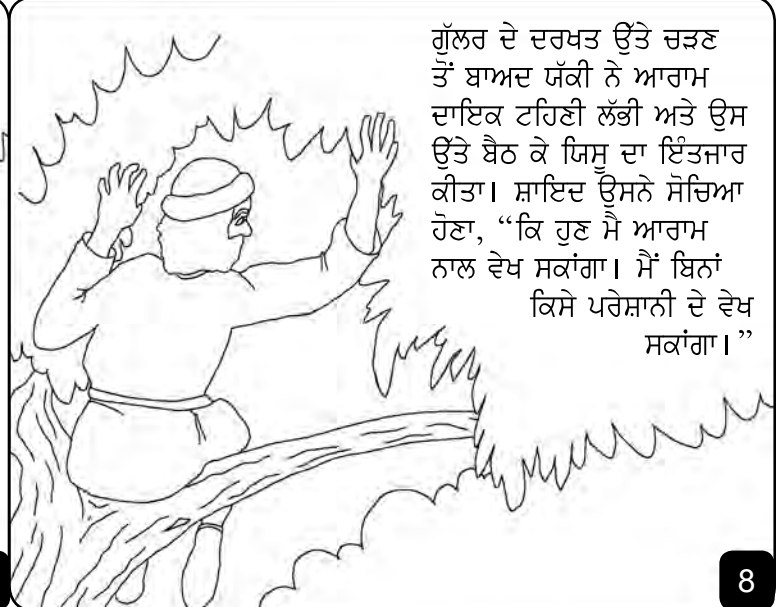 ਗੁੱਲਰ ਦੇ ਦਰਖਤ ਉੱਤੇ ਚੜਣ
ਤੋਂ ਬਾਅਦ ਯੱਕੀ ਨੇ ਆਰਾਮ
ਦਾਇਕ ਟਹਿਣੀ ਲੱਭੀ ਅਤੇ ਉਸ
ਉੱਤੇ ਬੈਠ ਕੇ ਯਿਸੂ ਦਾ ਇੰਤਜਾਰ
ਕੀਤਾ। ਸ਼ਾਇਦ ਉਸਨੇ ਸੋਚਿਆ
ਹੋਣਾ, “ਕਿ ਹੁਣ ਮੈ ਆਰਾਮ
ਨਾਲ ਵੇਖ ਸਕਾਂਗਾ। ਮੈਂ ਬਿਨਾਂ
ਕਿਸੇ ਪਰੇਸ਼ਾਨੀ ਦੇ ਵੇਖ
ਸਕਾਂਗਾ।”
8